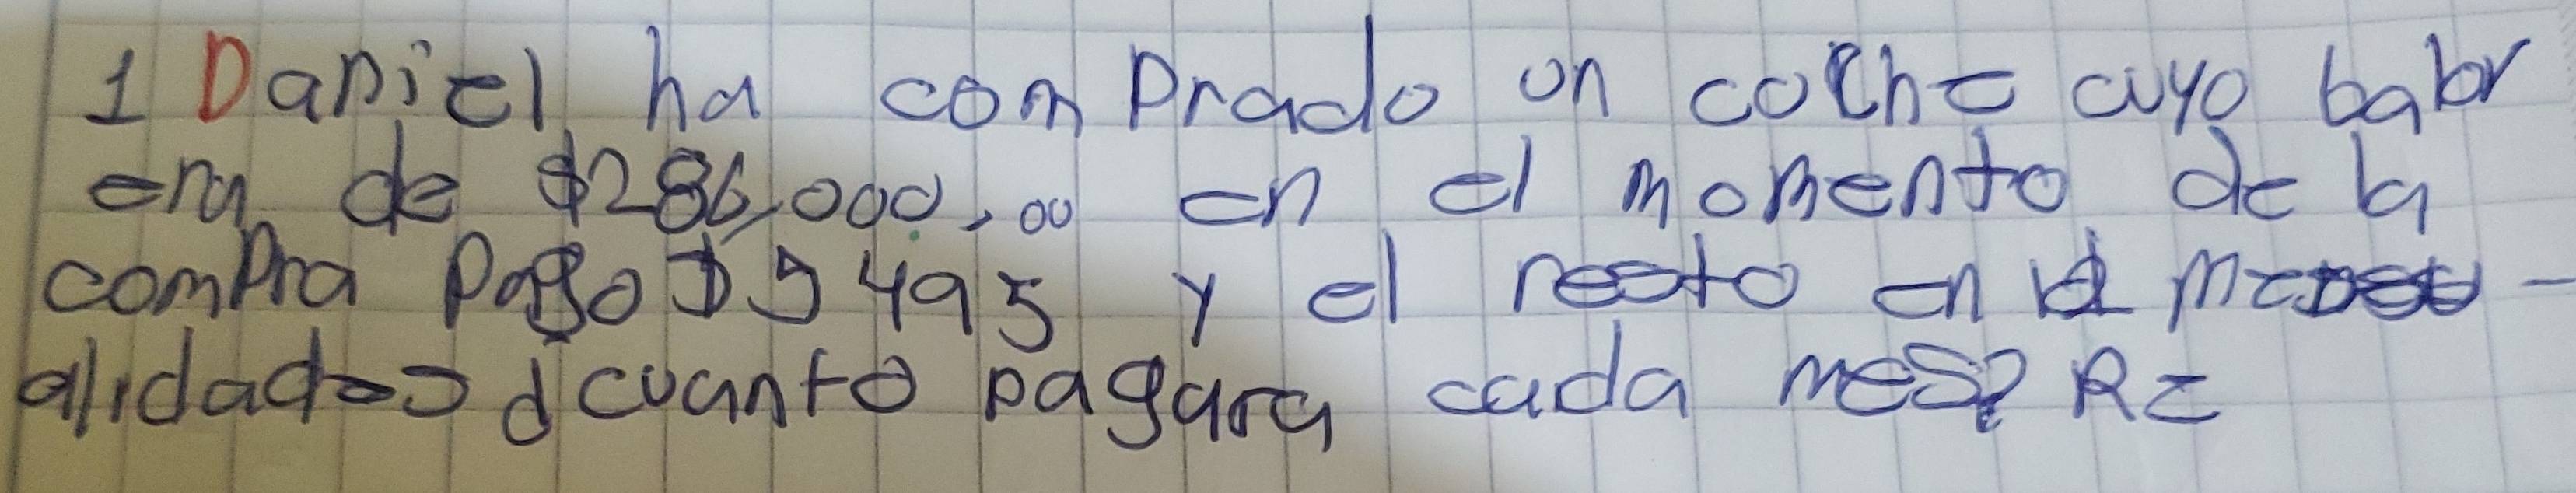 1 Daniel ha comprado un coche cuyo balor
era de $286,000,00 en el momento de la
compra Pago $5495 y el resto en 12 mensu-
alidades ¿cuanto pagara cada mes? R=